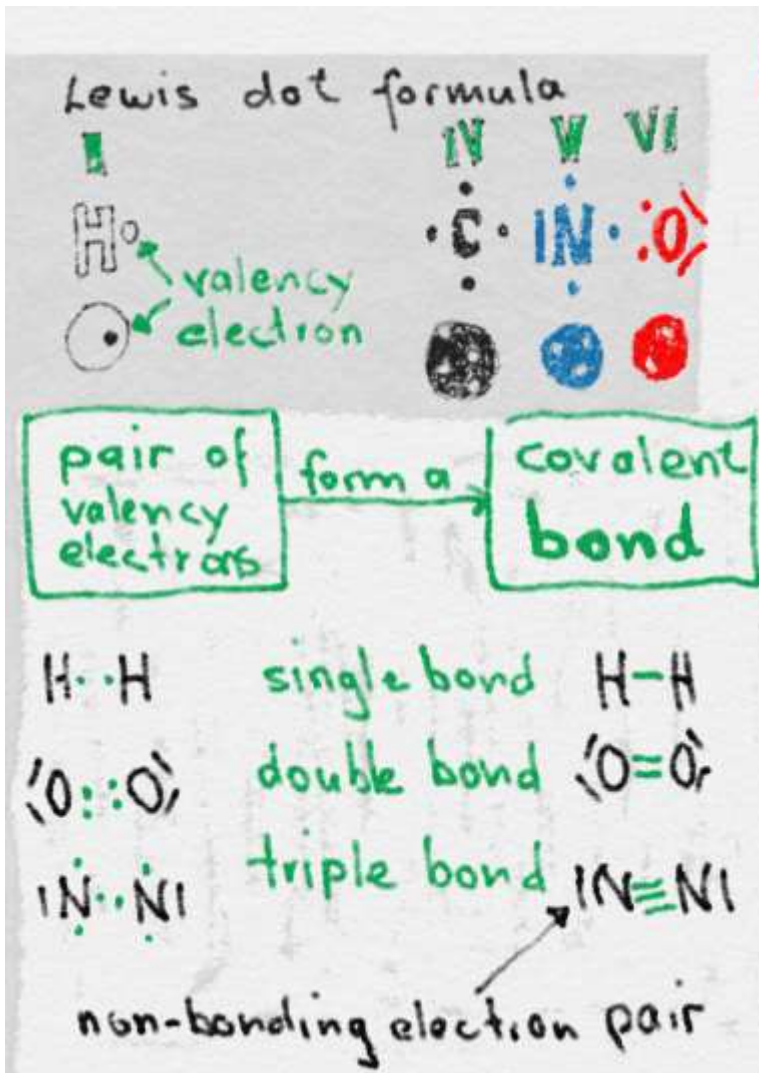 Lewis dot formula
I IV V VI
H C N O
valency
electron
pair of
valency
electrons
form a
covalent
bond
H··H single bond H−H
O::O double bond O=O
N··N triple bond N≡N
non-bonding electron pair